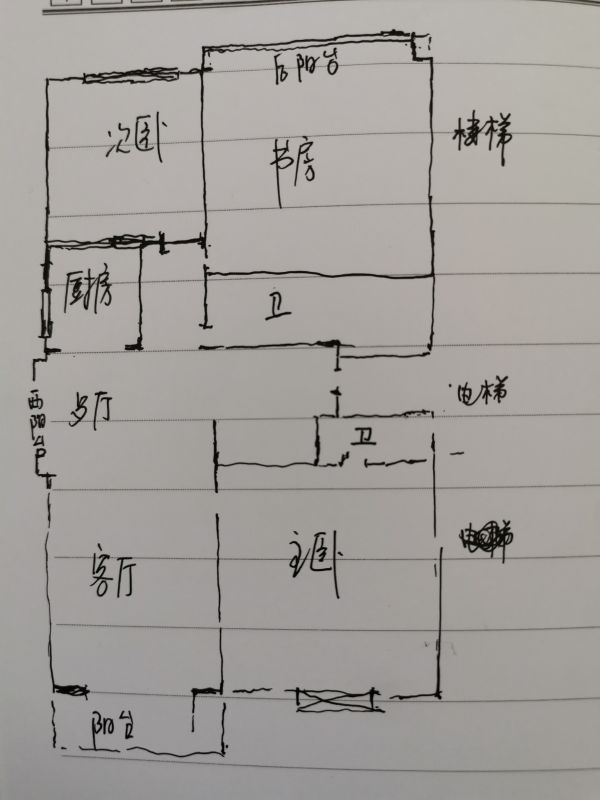 后阳台
次卧
书房
楼梯
厨房
卫
电梯
西阳台
歺厅
卫
客厅
主卧
阳台